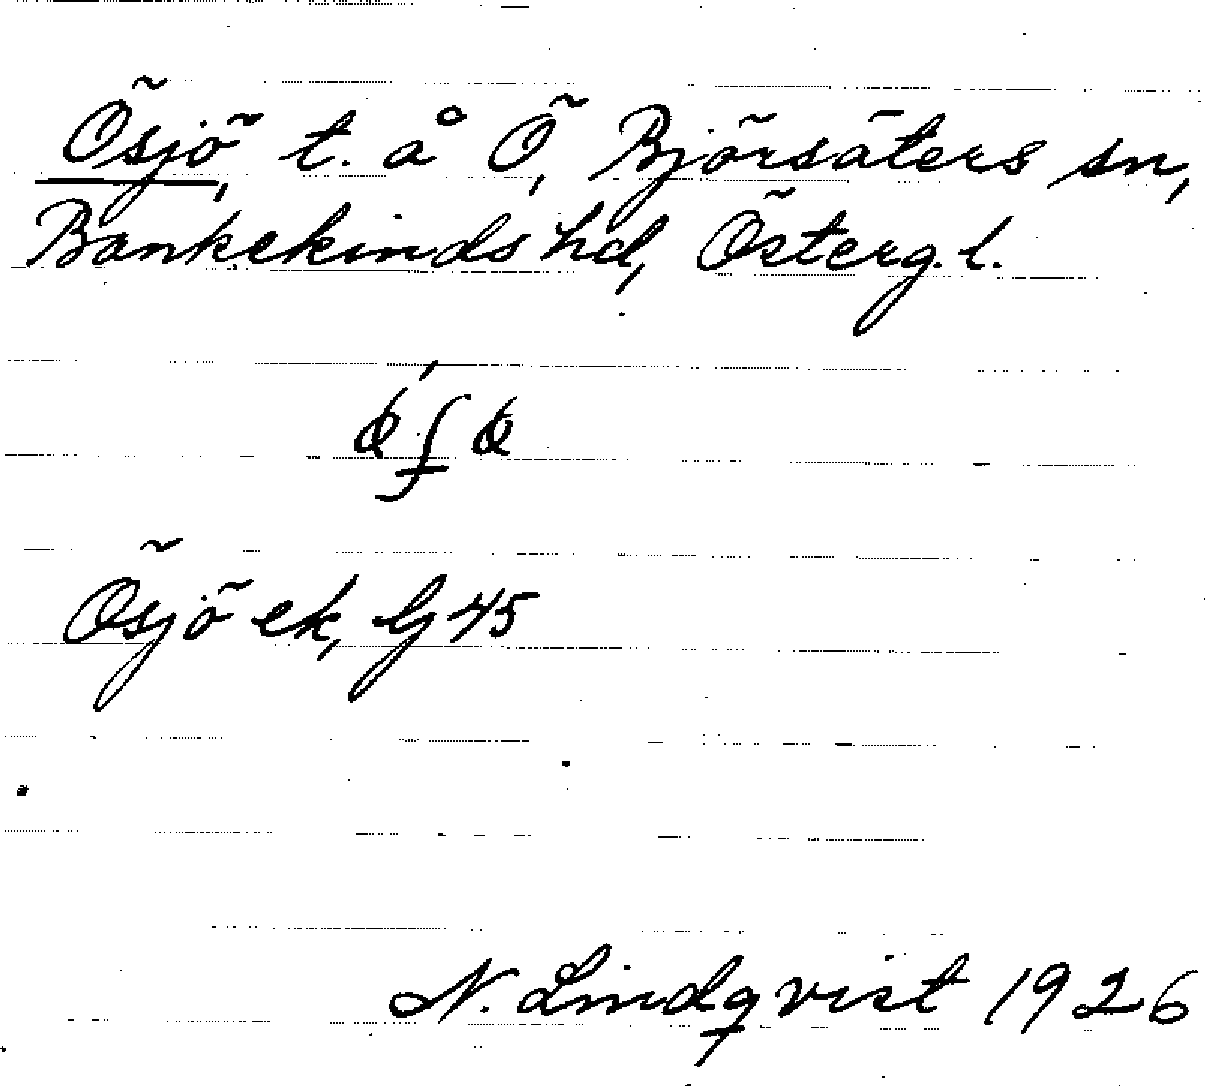 Ösjö, t. å Ö, Björsäters sn,
Bankekinds hd, Österg. l.
Ösjö ek, Lg 45
N. Lindqvist 1926